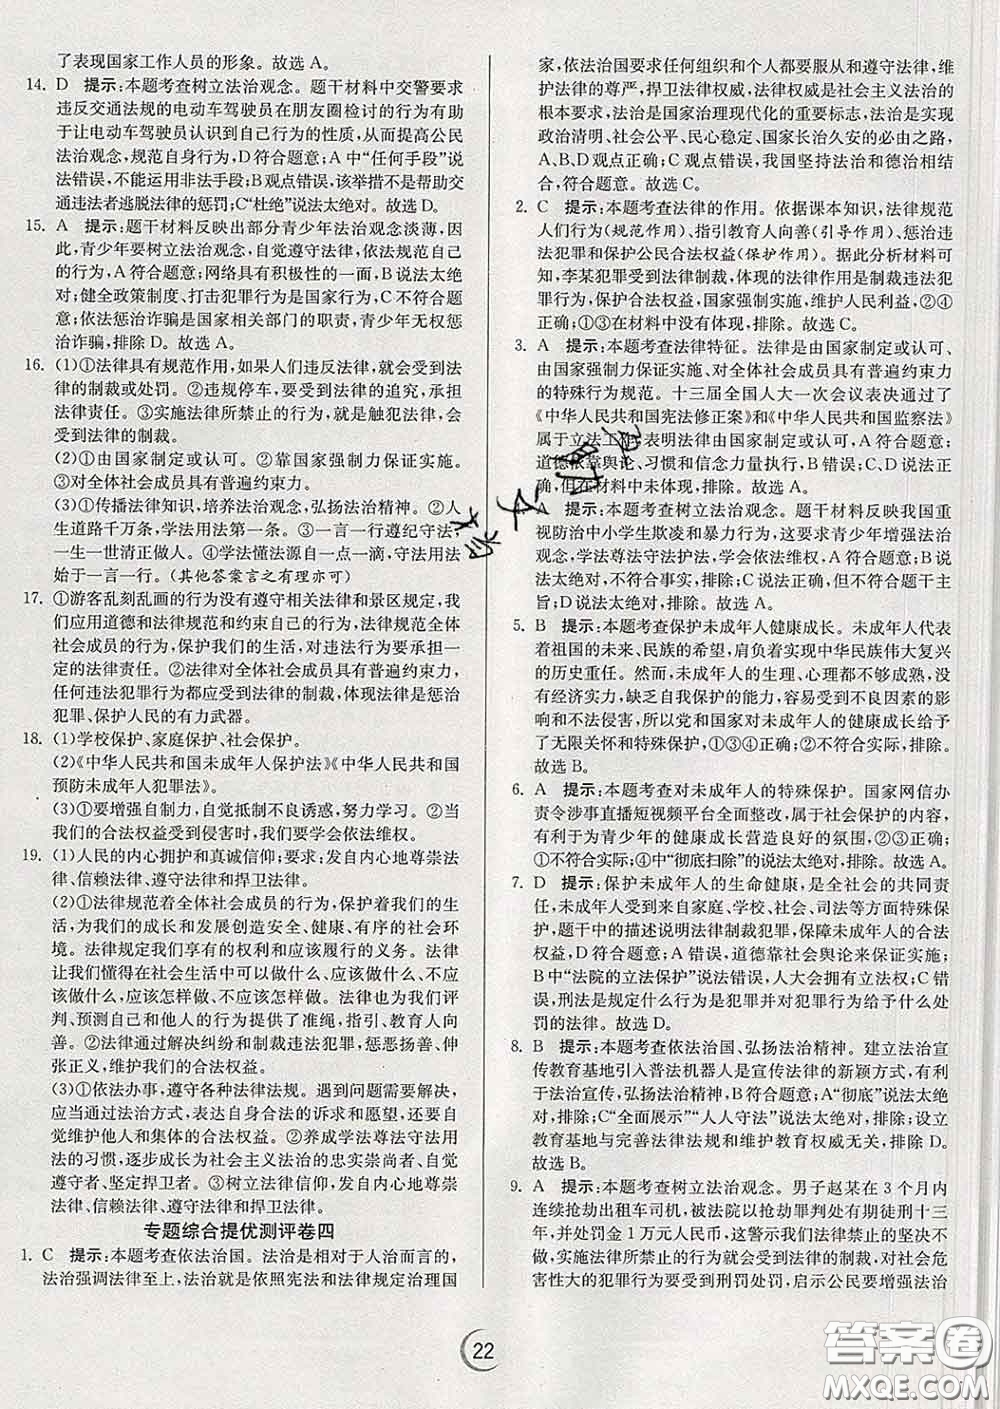 了表现国家工作人员的形象。故选 A。
14. D 提示:本题考查树立法治观念。题干材料中交警要求
违反交通法规的电动车驾驶员在朋友圈检讨的行为有助
于让电动车驾驶员认识到自己行为的性质,从而提高公民
法治观念,规范自身行为,D 符合题意;A 中“任何手段”说
法错误,不能运用非法手段;B 观点错误,该举措不是帮助交
通违法者逃脱法律的惩罚;C“杜绝”说法太绝对。故选 D。
15. A 提示:题干材料反映出部分青少年法治观念淡薄,因
此,青少年要树立法治观念,自觉遵守法律,依法规范自己
的行为,A 符合题意;网络具有积极性的一面,B 说法太绝
对;健全政策制度、打击犯罪行为是国家行为,C 不符合题
意;依法惩治诈骗是国家相关部门的职责,青少年无权惩
治诈骗,排除 D。故选 A。
16. (1)①法律具有规范作用,如果人们违反法律,就会受到法
律的制裁或处罚。②违规停车,要受到法律的追究,承担
法律责任。③实施法律所禁止的行为,就是触犯法律,会
受到法律的制裁。
(2)①由国家制定或认可。②靠国家强制力保证实施。
③对全体社会成员具有普遍约束力。
(3)①传播法律知识,培养法治观念,弘扬法治精神。②人
生道路千万条,学法用法第一条。③一言一行遵纪守法,
一生一世清正做人。④学法懂法源自一点一滴,守法用法
始于一言一行。(其他答案言之有理亦可)
17. ①游客乱刻乱画的行为没有遵守相关法律和景区规定,我
们应用道德和法律规范和约束自己的行为,法律规范全体
社会成员的行为,保护我们的生活,对违法行为要承担一
定的法律责任。②法律对全体社会成员具有普遍约束力,
任何违法犯罪行为都应受到法律的制裁,体现法律是惩治
犯罪、保护人民的有力武器。
18. (1)学校保护、家庭保护、社会保护。
(2)《中华人民共和国未成年人保护法》《中华人民共和国
预防未成年人犯罪法》。
(3)①要增强自制力,自觉抵制不良诱惑,努力学习。②当
我们的合法权益受到侵害时,我们要学会依法维权。
19. (1)人民的内心拥护和真诚信仰;要求:发自内心地尊崇法
律、信赖法律、遵守法律和捍卫法律。
(2)①法律规范着全体社会成员的行为,保护着我们的生
活,为我们的成长和发展创造安全、健康、有序的社会环
境。法律规定我们享有的权利和应该履行的义务。法律
让我们懂得在社会生活中可以做什么、不可以做什么,应
该做什么、不应该做什么,应该怎样做、不应该怎样做。法律也为我们评
判、预测自己和他人的行为提供了准绳,指引、教育人向
善。②法律通过解决纠纷和制裁违法犯罪,惩恶扬善、伸
张正义,维护我们的合法权益。
(3)①依法办事,遵守各种法律法规。遇到问题需要解决,
应当通过法治方式,表达自身合法的诉求和愿望,还要自
觉维护他人和集体的合法权益。②养成学法尊法守法用
法的习惯,逐步成长为社会主义法治的忠实崇尚者、自觉
遵守者、坚定捍卫者。③树立法律信仰,发自内心地尊崇
法律、信赖法律、遵守法律和捍卫法律。
专题综合提优测评卷四
1. C 提示:本题考查依法治国。法治是相对于人治而言的,
法治强调法律至上,法治就是依照宪法和法律规定治理国
家,依法治国要求任何组织和个人都要服从和遵守法律,维
护法律的尊严,捍卫法律权威,法律权威是社会主义法治的
根本要求,法治是国家治理现代化的重要标志,法治是实现
政治清明、社会公平、民心稳定、国家长治久安的必由之路,
A、B、D 观点正确;C 观点错误,我国坚持法治和德治相结
合,符合题意。故选 C。
2. C 提示:本题考查法律的作用。依据课本知识,法律规范
人们行为(规范作用)、指引教育人向善(引导作用)、惩治
违法犯罪和保护公民合法权益(保护作用)。据此分析材料可
知,李某犯罪受到法律制裁,体现的法律作用是制裁违法犯
罪行为,保护合法权益,国家强制实施,维护人民利益,②④
正确;①③在材料中没有体现,排除。故选 C。
3. A 提示:本题考查法律特征。法律是由国家制定或认可、
由国家强制力保证实施、对全体社会成员具有普遍约束力
的特殊行为规范。十三届全国人大一次会议表决通过了
《中华人民共和国宪法修正案》和《中华人民共和国监察法》
属于立法工作,表明法律由国家制定或认可,A 符合题意;
道德依靠舆论、习惯和信念力量执行,B 错误;C、D 说法正
确,但在材料中未体现,排除。故选 A。
A 提示:本题考查树立法治观念。题干材料反映我国重
视防治中小学生欺凌和暴力行为,这要求青少年增强法治
观念,学法尊法守法护法,学会依法维权,A 符合题意;B 说
法太绝对,不符合事实,排除;C 说法正确,但不符合题干主
旨;D 说法太绝对,排除。故选 A。
5. B 提示:本题考查保护未成年人健康成长。未成年人代表
着祖国的未来、民族的希望,肩负着实现中华民族伟大复兴
的历史重任。然而,未成年人的生理、心理都不够成熟,没
有经济实力,缺乏自我保护的能力,容易受到不良因素的影
响和不法侵害,所以党和国家对未成年人的健康成长给予
了无限关怀和特殊保护,①③④正确;②不符合实际,排除。
故选 B。
6. A 提示:本题考查对未成年人的特殊保护。国家网信办
责令涉事直播短视频平台全面整改,属于社会保护的范畴,
有利于为青少年的健康成长营造良好的氛围,②③正确;
①不符合实际;④中“彻底扫除”的说法太绝对,排除。故选 A。
7. D 提示:保护未成年人的生命健康,是全社会的共同责
任,需要来自家庭、学校、社会、司法等方面的共同保护,因
此,题干中的描述说明法律制裁犯罪,保障未成年人的合法
权益,D 符合题意;A 错误,道德靠社会舆论来保证实施;
B 中“法院的立法保护”说法错误,人大会拥有立法权;C 错
误,刑法是规定什么行为是犯罪并对犯罪行为给予什么处
罚的法律。故选 D。
8. B 提示:本题考查依法治国、弘扬法治精神。建立法治宣
传教育基地引入普法机器人是宣传法律的新颖方式,有利
于法治宣传,弘扬法治精神,B 符合题意;A“彻底”说法太绝
对,排除;C“全面展示”“人人守法”说法太绝对,排除;设立
教育基地与完善法律法规和维护教育权威无关,排除 D。
故选 B。
9. A 提示:本题考查树立法治观念。男子赵某在 3 个月内
连续抢劫出租车司机,被法院以抢劫罪判处有期徒刑十三
年,并处罚金 1 万元人民币,警示人们,法律禁止的坚决不
做,实施法律所禁止的行为就会受到法律的制裁,对社会危
害性大的犯罪行为要受到刑罚处罚,启示公民要增强法治
22
答案圈
MXQE.COM